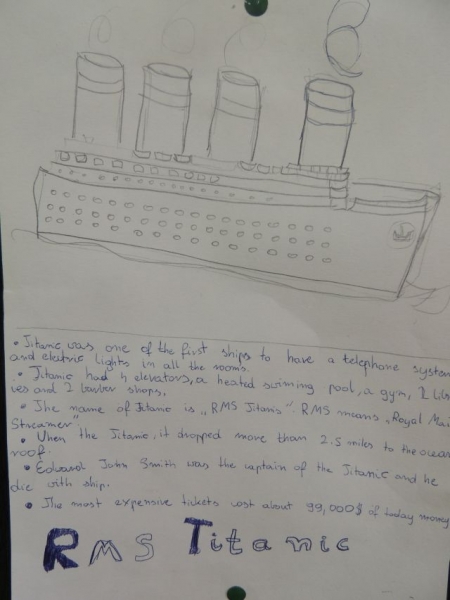 • Titanic was one of the first ships to have a telephone system
and electric lights in all the rooms.
• Titanic had 4 elevators, a heated swiming pool, a gym, 2 Libr
ies and 2 barber shops.
• The name of Titanic is „RMS Titanis". RMS means „Royal Mai
Streamer"
• When the Titanic, it dropped more than 2.5 miles to the ocean
roof.
• Edward John Smith was the captain of the Titanic and he
die with ship.
• The most expensive tickets cost about 99,000$ of today money
RMS Titanic